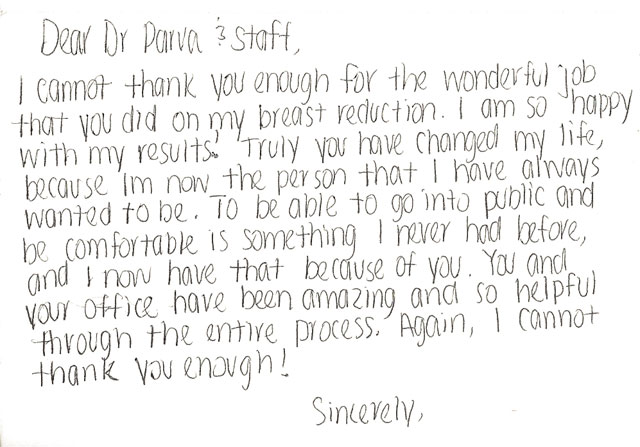 Dear Dr Parva & Staff,
I cannot thank you enough for the wonderful job
that you did on my breast reduction. I am so happy
with my results! Truly you have changed my life,
because Im now the person that I have always
wanted to be. To be able to go into public and
be comfortable is something I never had before,
and I now have that because of you. You and
your office have been amazing and so helpful
through the entire process. Again, I cannot
thank you enough!
Sincerely,